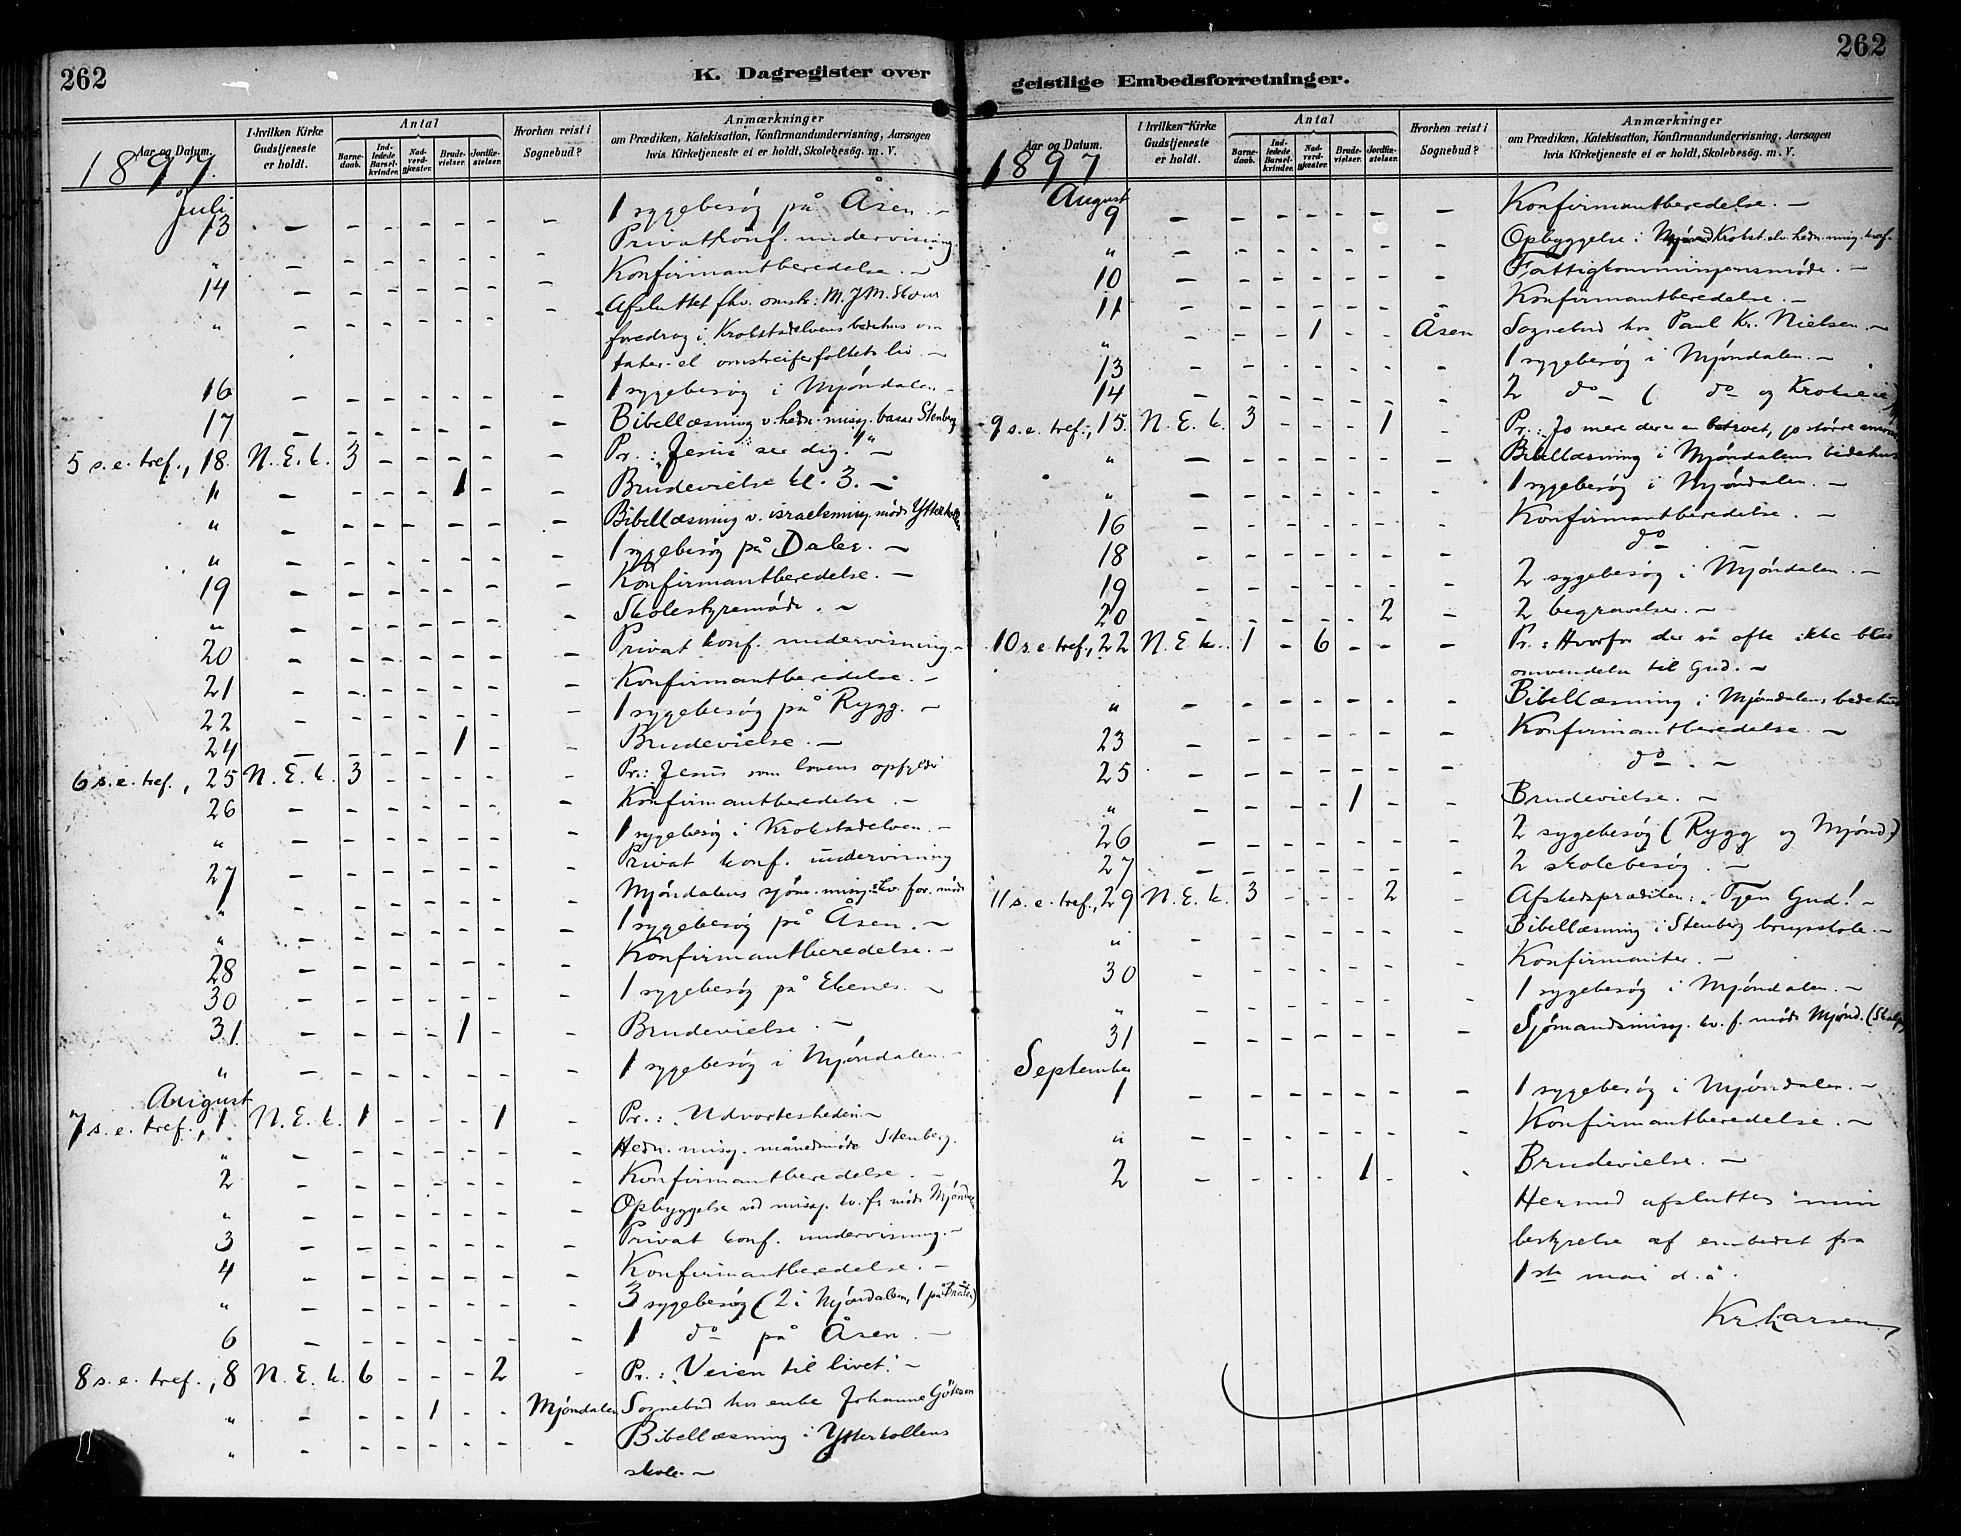 262
K. Dagregister over
Aar og Datum.
I hvilken Kirke Gudstjeneste er holdt.
Antal
Barne-daab.
Ind-ledede Barsel-kvinder.
Nad-verd-gjæster.
Brude-vielser.
Jordfæ-stelser.
Hvorhen reist i Sognebud?
Anmærkninger
om Prædiken, Katekisation, Konfirmandundervisning, Aarsagen
hvis Kirketjeneste ei er holdt, Skolebesög. m. V.
1897.
Juli
13 – – – – – – – 1 sygebesøg på Åsen. –
" – – – – – – – Privatkonf. undervisning.
14 – – – – – – – Konfirmantberedelse. –
" – – – – – – – Afsluttet omstr: M. J M.
foredrag i Krokstadelvens bedehus om
tater- el. omstreiferfolkets liv. –
16 – – – – – – – 1 sygebesøg i Mjøndalen. –
17 – – – – – – – Bibellæsning v. hedn. misj. basar Stenberg
5 s. e. tref., 18. N. E. k. 3 – – – – – Pr.: "Jesus ser dig!" –
" – – – – 1 – – Brudevielse kl. 3. –
" – – – – – – – Bibellæsning v. israelsmisj. møde Ytterkollen
" – – – – – – – 1 sygebesøg på Daler. –
19 – – – – – – – Konfirmantberedelse. –
" – – – – – – – Skolestyremøde. –
20 – – – – – – – Privat konf. undervisning. –
21 – – – – – – – Konfirmantberedelse. –
22 – – – – – – – 1 sygebesøg på Rygg. –
24 – – – – 1 – – Brudevielse. –
6 s. e. tref., 25 N. E. k. 3 – – – – – Pr.: Jesus som lovens opfylder
26 – – – – – – – Konfirmantberedelse. –
" – – – – – – – 1 sygebesøg i Krokstadelven. –
27 – – – – – – – Privat konf. undervisning
" – – – – – – – Mjøndalens sjøm. misj. kv. for. møde
" – – – – – – – 1 sygebesøg på Åsen. –
28 – – – – – – – Konfirmantberedelse. –
30 – – – – – – – 1 sygebesøg på Ekenes. –
31 – – – – 1 – – Brudevielse. –
" – – – – – – – 1 sygebesøg i Mjøndalen. –
August
7 s. e. tref., 1 N. E. k. 1 – – – 1 – Pr.: Udvortesheden –
" – – – – – – – Hedn. misj. månedsmøde Stenberg.
2 – – – – – – – Konfirmantberedelse. –
" – – – – – – – Opbyggelse ved misj. kv. f. møde
3 – – – – – – – Privat konf. undervisning. –
4 – – – – – – – Konfirmantberedelse. –
" – – – – – – – 3 sygebesøg (2 i Mjøndalen, 1 på
6 – – – – – – – 1 do på Åsen. –
8 s. e. tref., 8 N. E. k. 6 – – – 2 – Pr.: "Veien til livet." –
" – – – 1 – – Mjøndalen Sognebud hos enke Johanne
" – – – – – – – Bibellæsning i Ytterkollens
skole. –
262
geistlige Embedsforretninger.
Aar og Datum.
I hvilken Kirke Gudstjeneste er holdt.
Antal
Barne-daab.
Ind-ledede Barsel-kvinder.
Nad-verd-gjæster.
Brude-vielser.
Jordfæ-stelser.
Hvorhen reist i Sognebud?
Anmærkninger
om Prædiken, Katekisation, Konfirmandundervisning, Aarsagen
hvis Kirketjeneste ei er holdt, Skolebesög. m. V.
1897
August
9 – – – – – – – Konfirmantberedelse. –
" – – – – – – – Opbyggelse i Krokst.elv. hedn. misj.
10 – – – – – – – Fattigkommissionsmøde. –
11 – – – – – – – Konfirmantberedelse. –
" – – – 1 – – Åsen Sognebud hos Paul Kr. Nielsen. –
13 – – – – – – – 1 sygebesøg i Mjøndalen. –
14 – – – – – – – 2 do – ( do og
9 s. e. tref., 15. N. E. k. 3 – – – 1 – Pr.: Jo mere der er betroet, jo større
" – – – – – – – Bibellæsning i Mjøndalens bedehus
" – – – – – – – 1 sygebesøg i Mjøndalen. –
16 – – – – – – – Konfirmantberedelse. –
18 – – – – – – – do –
19 – – – – – – – 2 sygebesøg i Mjøndalen. –
20 – – – – – 2 – 2 begravelser. –
10 s. e. tref., 22 N. E. k. 1 – 6 – – – Pr.: Hvorfor der så ofte ikke blir
omvendelse til Gud. –
" – – – – – – – Bibellæsning i Mjøndalens bedehus
23 – – – – – – – Konfirmantberedelse. –
25 – – – – – – – do. –
" – – – – 1 – – Brudevielse. –
26 – – – – – – – 2 sygebesøg (Rygg og Mjønd.)
27 – – – – – – – 2 skolebesøg. –
11 s. e. tref., 29 N. E. k. 3 – – – 2 – Afskedsprædiken: "Tjen Gud! –
" – – – – – – – Bibellæsning i Stenberg brugsskole. –
30 – – – – – – – Konfirmanter. –
" – – – – – – – 1 sygebesøg i Mjøndalen. –
31 – – – – – – – Sjømandsmisj. kv. f. møde Mjønd.
September
1 – – – – – – – 1 sygebesøg i Mjøndalen. –
" – – – – – – – Konfirmantberedelse. –
2 – – – – 1 – – Brudevielse. –
Hermed afsluttes min
bestyrelse af embedet fra
1ste mai d. å.
Kr. Larsen